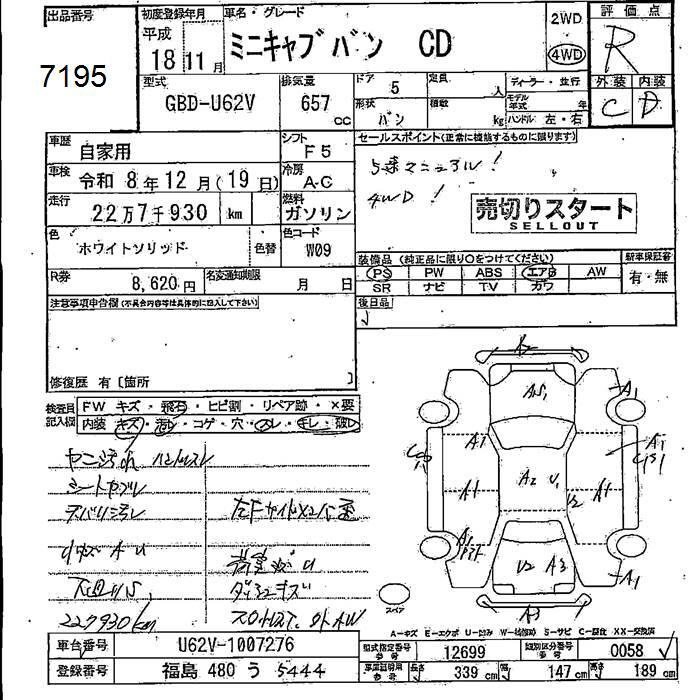 出品番号 初度登録年月 車名・グレード 2WD 評価点
7195 平成 18 11月 ミニキャブバン CD 4WD R
型式 排気量 ドア 5 定員 人 ディーラー・並行 外装 内装
GBD-U62V 657 cc 形状 バン 積載 kg モデル年式 年 ハンドル 左・右 C D
車歴 自家用 シフト F5 セールスポイント(正常に機能するものに限ります)
車検 令和 8年 12月(19日) 冷房 A-C 5速マニュアル!
走行 22万7千930 km 燃料 ガソリン 4WD!
売切りスタート
SELLOUT
色 ホワイトソリッド 色替 色コード W09
装備品(純正品に限り○をつけてください) 新車保証書
R券 8,620円 名変通知期限 月 日 PS PW ABS エアB AW 有・無
SR ナビ TV カワ
注意事項申告欄(不具合内容等は具体的に記入して下さい) 後日品
修復歴 有〔箇所 〕
検査員記入欄 FW キズ・飛石・ヒビ割・リペア跡・×要
内装 キズ・汚レ・コゲ・穴・スレ・キレ・破レ
ヤニ汚れ ハンドルスレ
シートヤブレ
A1
A1
A2 U1
U2
A1
A1
U2 A3
A1
A3
227930km
スペア
A-キズ E-エクボ U-凹み W-補修跡 S-サビ C-腐食 XX-交換済
車台番号 U62V-1007276 型式指定番号 12699 類別区分番号 0058
登録番号 福島 480 う 5444 長さ 339 cm 幅 147 cm 高さ 189 cm